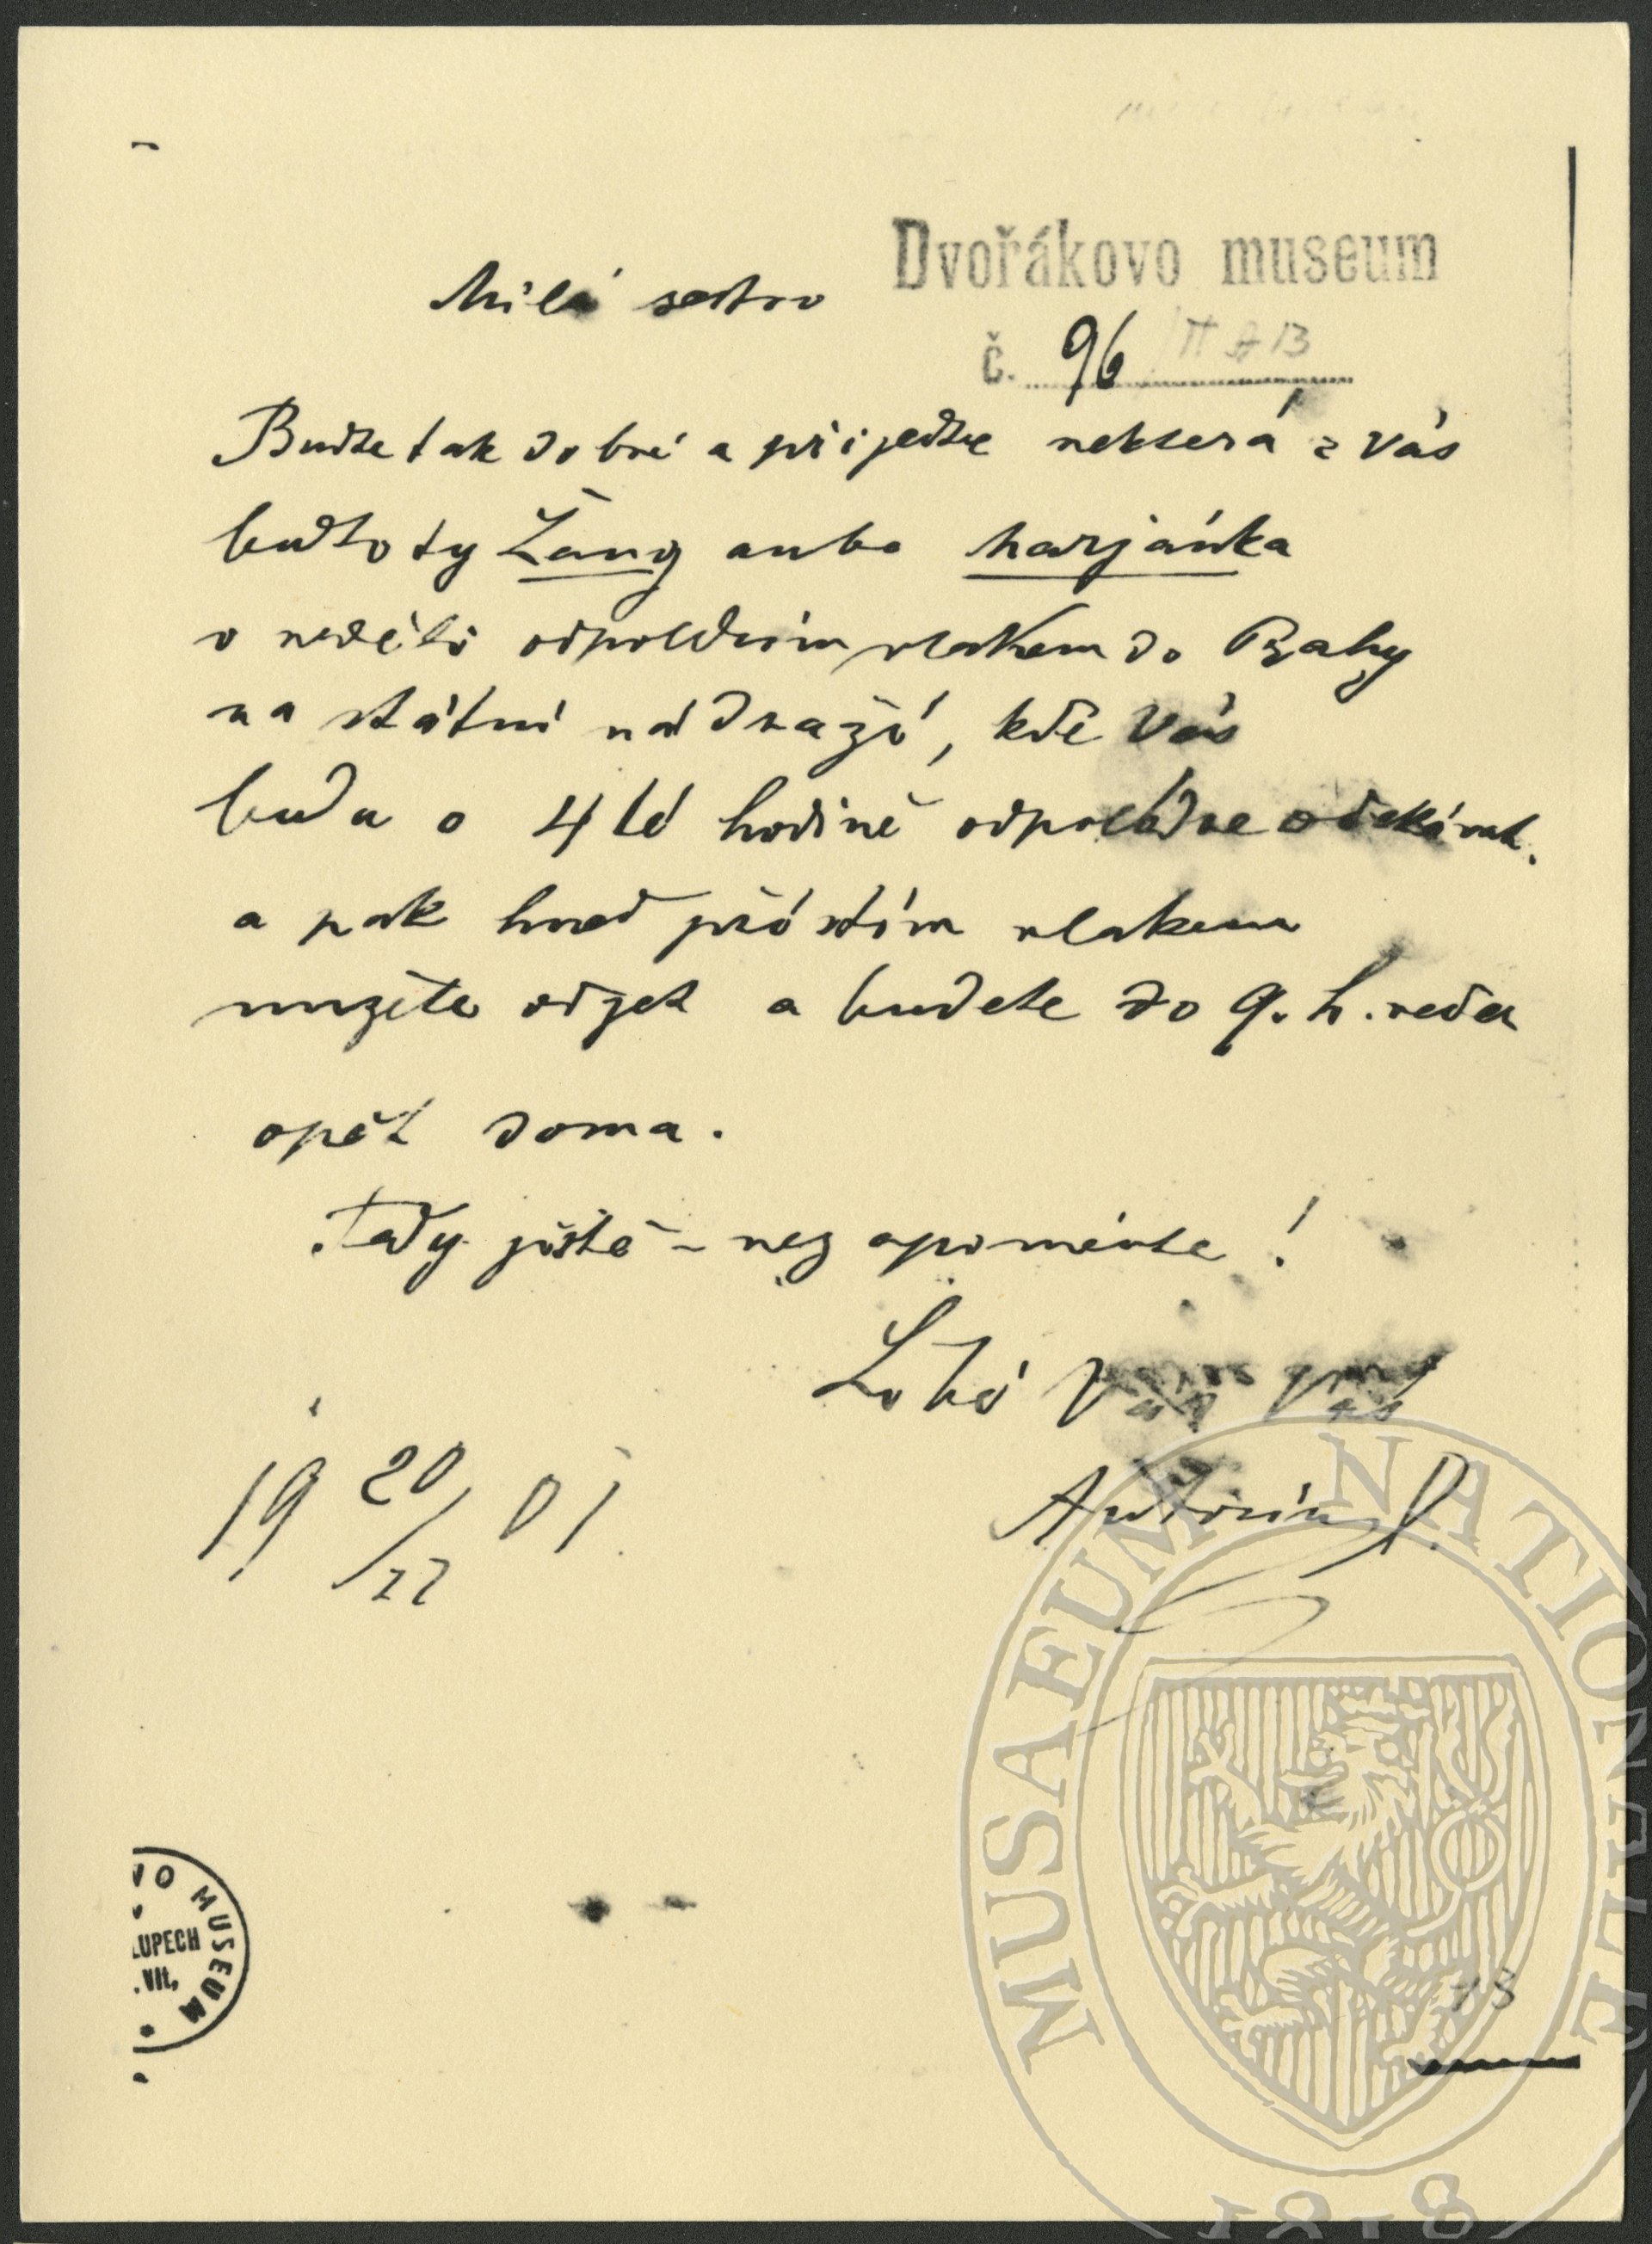 Dvořákovo museum
Milá sestro
č. 96 II A 13
Budte tak dobré a přijedte nektera z Vás
budto ty Žany anbo Marjánka
v nedéli odpoldním vlakem do Prahy
na státní nádraží, kde Vás
budu o 4té hodině odpoledne očekávat.
a pak hned příštím vlakem
muzete odjet a budete do 9. h. večer
opět doma.
Tedy jistě – nezapomente!
Líbá Vás Váš
Antonín D.
19 20/11 01
VO MUSEUM
LUPECH
Vlt.
13
MUSAEUM NATIONALE
1818